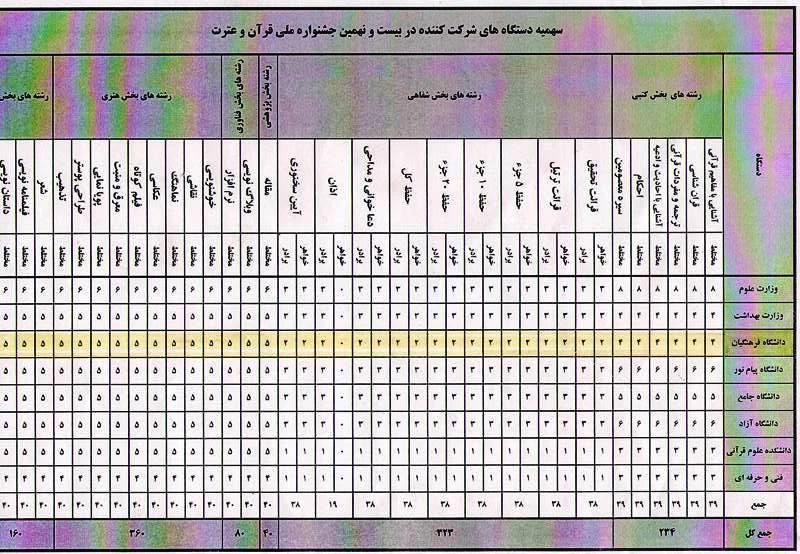 سهمیه دستگاه های شرکت کننده در بیست و نهمین جشنواره ملی قرآن و عترت
دستگاه رشته های بخش کتبی رشته های بخش شفاهی رشته های بخش پژوهشی رشته های بخش فناوری رشته های بخش هنری رشته های بخش
آشنایی با مفاهیم قرآنی قرآن شناسی ترجمه و مفردات قرآنی آشنایی با احادیث و ادعیه احکام سیره معصومین قرائت تحقیق قرائت ترتیل حفظ ۵ جزء حفظ ۱۰ جزء حفظ ۲۰ جزء حفظ کل دعا خوانی و مداحی اذان آیین سخنوری مقاله وبلاگ نویسی نرم افزار خوشنویسی نقاشی نماهنگ عکاسی فیلم کوتاه معرق و منبت پویانمایی طراحی پوستر تذهیب شعر فیلمنامه نویسی داستان نویسی
مختلط مختلط مختلط مختلط مختلط مختلط خواهر برادر خواهر برادر خواهر برادر خواهر برادر خواهر برادر خواهر برادر خواهر برادر خواهر برادر خواهر برادر مختلط مختلط مختلط مختلط مختلط مختلط مختلط مختلط مختلط مختلط مختلط مختلط مختلط مختلط مختلط
وزارت علوم ۸ ۸ ۸ ۸ ۸ ۸ ۳ ۳ ۳ ۳ ۳ ۳ ۳ ۳ ۳ ۳ ۳ ۳ ۳ ۳ ۰ ۳ ۳ ۳ ۶ ۶ ۶ ۶ ۶ ۶ ۶ ۶ ۶ ۶ ۶ ۶ ۶ ۶ ۶
وزارت بهداشت ۴ ۴ ۴ ۴ ۴ ۴ ۳ ۳ ۳ ۳ ۳ ۳ ۳ ۳ ۳ ۳ ۳ ۳ ۳ ۳ ۰ ۳ ۳ ۳ ۵ ۵ ۵ ۵ ۵ ۵ ۵ ۵ ۵ ۵ ۵ ۵ ۵ ۵ ۵
دانشگاه فرهنگیان ۴ ۴ ۴ ۴ ۴ ۴ ۲ ۲ ۲ ۲ ۲ ۲ ۲ ۲ ۲ ۲ ۲ ۲ ۲ ۲ ۰ ۲ ۲ ۲ ۵ ۵ ۵ ۵ ۵ ۵ ۵ ۵ ۵ ۵ ۵ ۵ ۵ ۵ ۵
دانشگاه پیام نور ۶ ۶ ۶ ۶ ۶ ۶ ۳ ۳ ۳ ۳ ۳ ۳ ۳ ۳ ۳ ۳ ۳ ۳ ۳ ۳ ۰ ۳ ۳ ۳ ۵ ۵ ۵ ۵ ۵ ۵ ۵ ۵ ۵ ۵ ۵ ۵ ۵ ۵ ۵
دانشگاه جامع ۵ ۵ ۵ ۵ ۵ ۵ ۳ ۳ ۳ ۳ ۳ ۳ ۳ ۳ ۳ ۳ ۳ ۳ ۳ ۳ ۰ ۳ ۳ ۳ ۵ ۵ ۵ ۵ ۵ ۵ ۵ ۵ ۵ ۵ ۵ ۵ ۵ ۵ ۵
دانشگاه آزاد ۶ ۶ ۶ ۶ ۶ ۶ ۳ ۳ ۳ ۳ ۳ ۳ ۳ ۳ ۳ ۳ ۳ ۳ ۳ ۳ ۰ ۳ ۳ ۳ ۵ ۵ ۵ ۵ ۵ ۵ ۵ ۵ ۵ ۵ ۵ ۵ ۵ ۵ ۵
دانشکده علوم قرآنی ۳ ۳ ۳ ۳ ۳ ۳ ۱ ۱ ۱ ۱ ۱ ۱ ۱ ۱ ۱ ۱ ۱ ۱ ۱ ۱ ۰ ۱ ۱ ۱ ۵ ۵ ۵ ۵ ۵ ۵ ۵ ۵ ۵ ۵ ۵ ۵ ۵ ۵ ۵
فنی و حرفه ای ۳ ۳ ۳ ۳ ۳ ۳ ۱ ۱ ۱ ۱ ۱ ۱ ۱ ۱ ۱ ۱ ۱ ۱ ۱ ۱ ۰ ۱ ۱ ۱ ۴ ۴ ۴ ۴ ۴ ۴ ۴ ۴ ۴ ۴ ۴ ۴ ۴ ۴ ۴
جمع ۳۹ ۳۹ ۳۹ ۳۹ ۳۹ ۳۹ ۳۸ ۳۸ ۳۸ ۳۸ ۳۸ ۳۸ ۳۸ ۱۹ ۳۸ ۴۰ ۴۰ ۴۰ ۴۰ ۴۰ ۴۰ ۴۰ ۴۰ ۴۰ ۴۰ ۴۰ ۴۰ ۴۰ ۴۰ ۴۰
جمع کل ۲۳۴ ۳۲۳ ۴۰ ۸۰ ۳۶۰ ۱۶۰